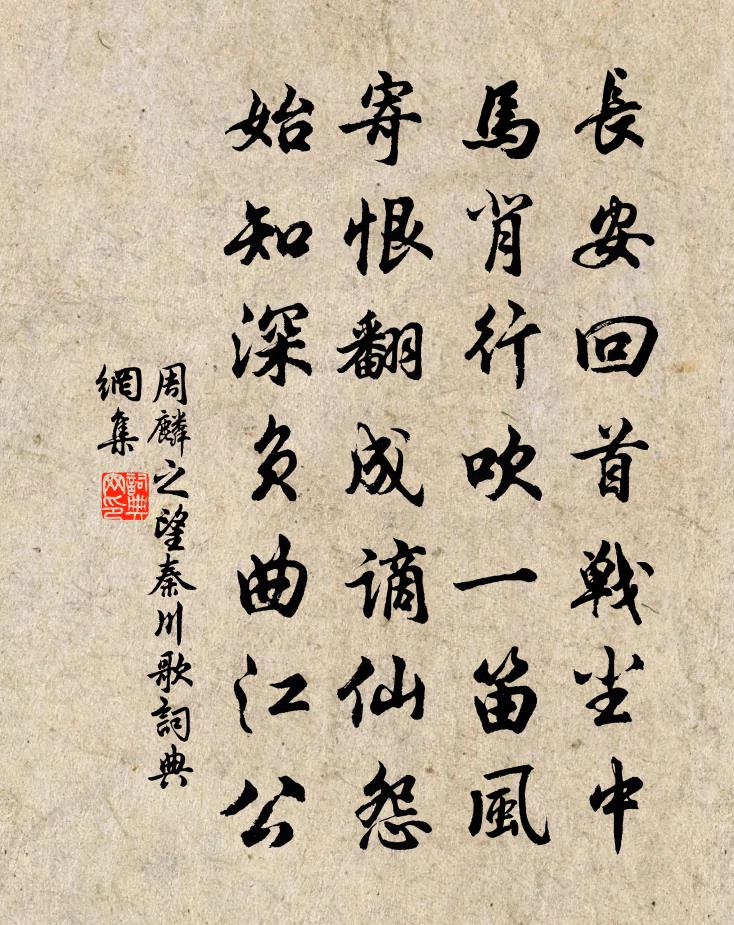 長安回首戦尘中
馬背行吹一笛風
寄恨翻成謫仙怨
始知深負曲江公
周麟之望秦川歌詞典
網集
詞典
网印